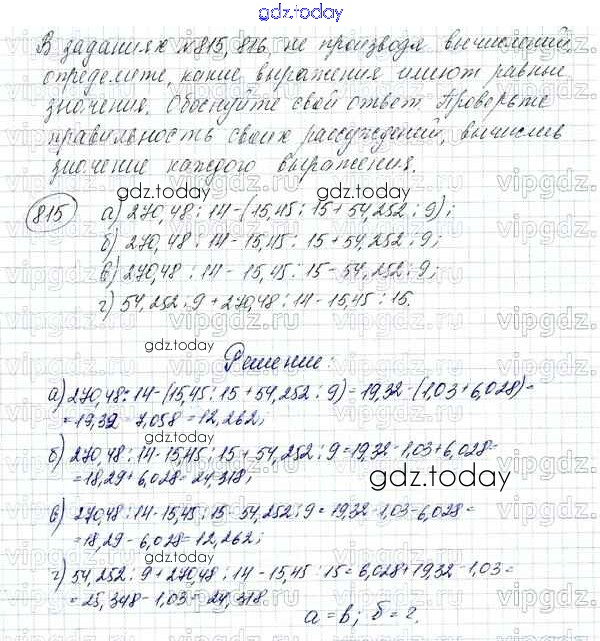 gdz.today
В заданиях №815, 816, не производя вычислений,
определите, какие выражения имеют равные
значения. Обоснуйте свой ответ. Проверьте
правильность своих рассуждений, вычислив
значение каждого выражения.
gdz.today
gdz.today
815 а) 270,48 : 14 - (15,45 : 15 + 54,252 : 9);
б) 270,48 : 14 - 15,45 : 15 + 54,252 : 9;
в) 270,48 : 14 - 15,45 : 15 - 54,252 : 9;
г) 54,252 : 9 + 270,48 : 14 - 15,45 : 15.
gdz.today
Решение:
а) 270,48 : 14 - (15,45 : 15 + 54,252 : 9) = 19,32 - (1,03 + 6,028) =
= 19,32 - 7,058 = 12,262;
gdz.today
б) 270,48 : 14 - 15,45 : 15 + 54,252 : 9 = 19,32 - 1,03 + 6,028 =
= 18,29 + 6,028 = 24,318;
gdz.today
в) 270,48 : 14 - 15,45 : 15 - 54,252 : 9 = 19,32 - 1,03 - 6,028 =
= 18,29 - 6,028 = 12,262;
gdz.today
г) 54,252 : 9 + 270,48 : 14 - 15,45 : 15 = 6,028 + 19,32 - 1,03 =
= 25,348 - 1,03 = 24,318.
а = в; б = г.
gdz.today